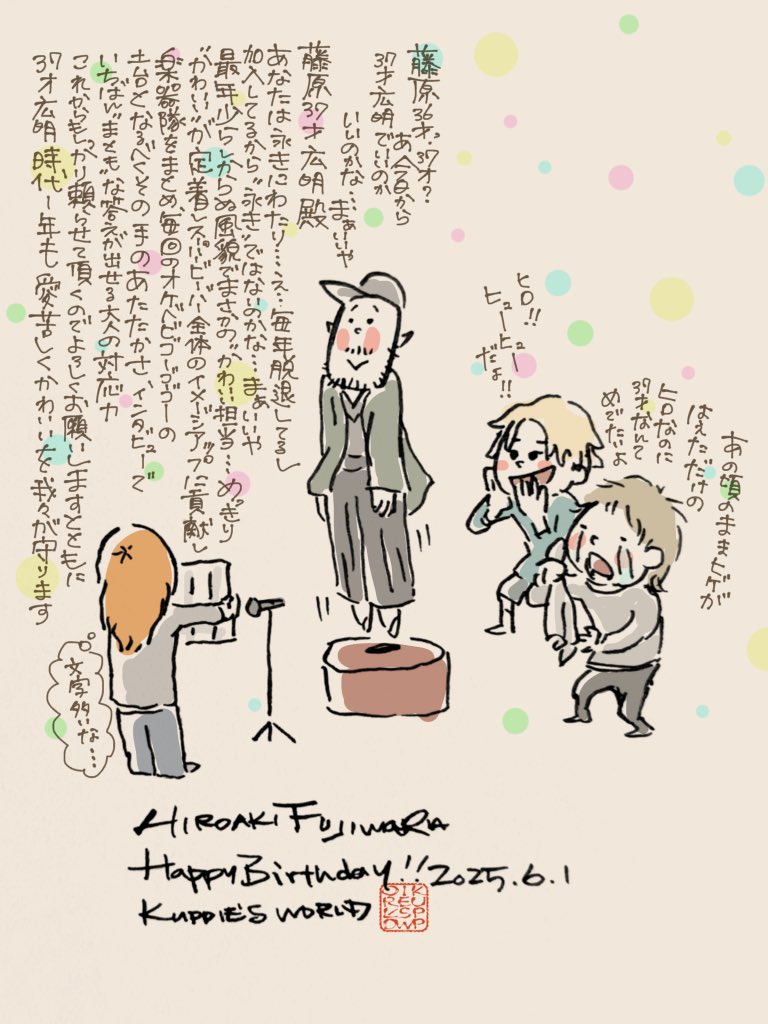 藤原36才?37才?
あ、今日から
37才広明でいいのか
いいのかな…まぁいいや
藤原37才広明殿
あなたは永きにわたり…え…毎年脱退してるし
加入してるから"永き"ではないのかな…まぁいいや
最年少らしからぬ風貌でまさかの"かわいい担当…めっきり
"かわいい"が定着しスパービーバー全体のイメージアップに貢献し
楽器隊をまとめ、毎回のオケヒンドゴーゴーの
土台となるべくその手のあたたかさ、インタビューで
いちばん"まとも"な答えが出せる大人の対応力
これからもしっかり頼らせて頂くのでよろしくお願いしますとともに
37才広明時代1年も愛苦しくかわいいたを我々が守ります
ヒロ!!
ヒューヒュー
だよ!!
あの頃のままヒゲが
はえただけの
ヒロなのに
37才なんて
めでたいよ
文字多いな…
HIROAKI FUJIWARA
Happy Birthday!! 2025.6.1
KUPPIE'S WORLD